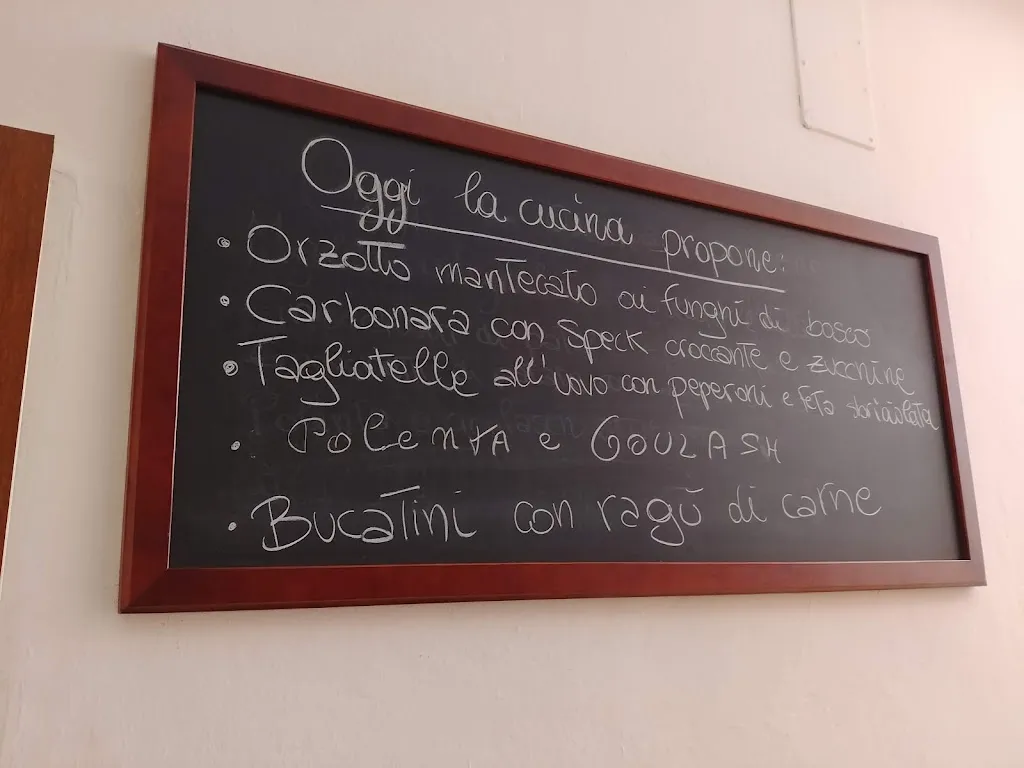 Oggi la cucina propone:
• Orzotto mantecato ai funghi di bosco
• Carbonara con Speck croccante e zucchine
• Tagliatelle all'uovo con peperoni e feta sbriciolata
• POLENTA e GOULASH
• Bucatini con ragù di carne